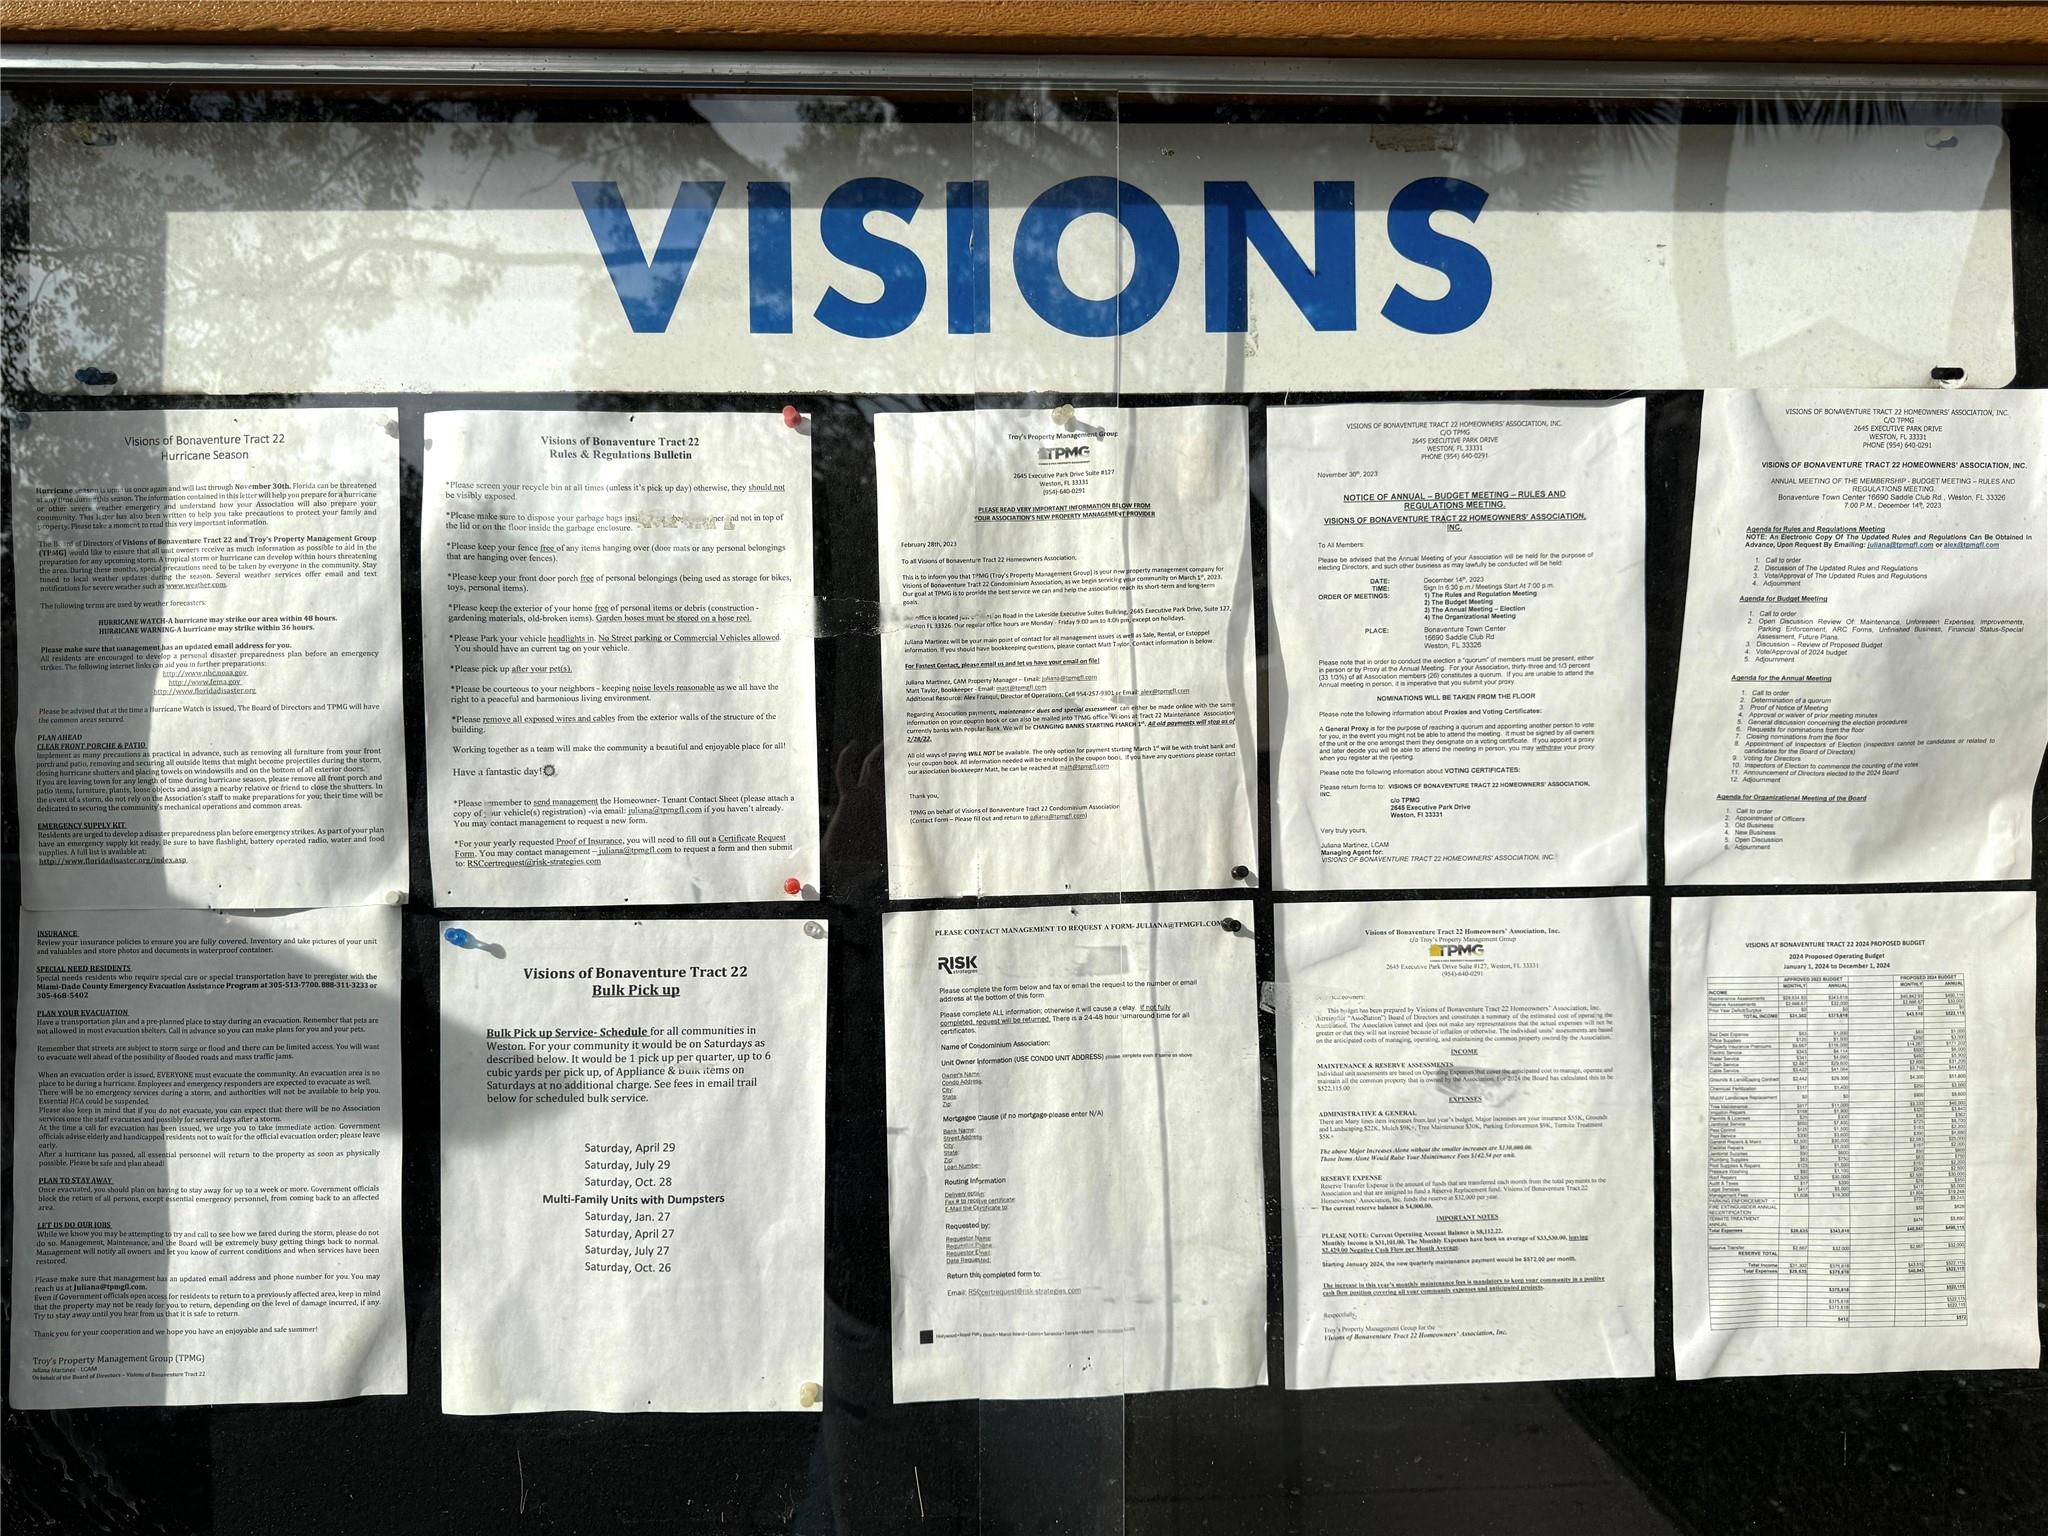 VISIONS
Visions of Bonaventure Tract 22
Hurricane Season
Hurricane season is upon us once again and will last through November 30th. Florida can be threatened
at any time during this season. The information contained in this letter will help you prepare for a hurricane
or other severe weather emergency and understand how your Association will also prepare your
community. This letter has also been written to help you take precautions to protect your family and
property. Please take a moment to read this very important information.
The Board of Directors of Visions of Bonaventure Tract 22 and Troy's Property Management Group
(TPMG) would like to ensure that all unit owners receive as much information as possible to aid in the
preparation for any upcoming storm. A tropical storm or hurricane can develop within hours threatening
the area. During these months, special precautions need to be taken by everyone in the community. Stay
tuned to local weather updates during the season. Several weather services offer email and text
notifications for severe weather such as www.weather.com.
The following terms are used by weather forecasters:
HURRICANE WATCH-A hurricane may strike our area within 48 hours.
HURRICANE WARNING-A hurricane may strike within 36 hours.
Please make sure that management has an updated email address for you.
All residents are encouraged to develop a personal disaster preparedness plan before an emergency
strikes. The following internet links can aid you in further preparations:
http://www.nhc.noaa.gov
http://www.fema.gov
http://www.floridadisaster.org
Please be advised that at the time a Hurricane Watch is issued, The Board of Directors and TPMG will have
the common areas secured.
PLAN AHEAD
CLEAR FRONT PORCHE & PATIO
Implement as many precautions as practical in advance, such as removing all furniture from your front
porch and patio, removing and securing all outside items that might become projectiles during the storm,
closing hurricane shutters and placing towels on windowsills and on the bottom of all exterior doors.
If you are leaving town for any length of time during hurricane season, please remove all front porch and
patio items, furniture, plants, loose objects and assign a nearby relative or friend to close the shutters. In
the event of a storm, do not rely on the Association's staff to make preparations for you; their time will be
dedicated to securing the community's mechanical operations and common areas.
EMERGENCY SUPPLY KIT
Residents are urged to develop a disaster preparedness plan before emergency strikes. As part of your plan
have an emergency supply kit ready. Be sure to have flashlight, battery operated radio, water and food
supplies. A full list is available at:
http://www.floridadisaster.org/index.asp
INSURANCE
Review your insurance policies to ensure you are fully covered. Inventory and take pictures of your unit
and valuables and store photos and documents in waterproof container.
SPECIAL NEED RESIDENTS
Special needs residents who require special care or special transportation have to preregister with the
Miami-Dade County Emergency Evacuation Assistance Program at 305-513-7700. 888-311-3233 or
305-468-5402
PLAN YOUR EVACUATION
Have a transportation plan and a pre-planned place to stay during an evacuation. Remember that pets are
not allowed in most evacuation shelters. Call in advance so you can make plans for you and your pets.
Remember that streets are subject to storm surge or flood and there can be limited access. You will want
to evacuate well ahead of the possibility of flooded roads and mass traffic jams.
When an evacuation order is issued, EVERYONE must evacuate the community. An evacuation area is no
place to be during a hurricane. Employees and emergency responders are expected to evacuate as well.
There will be no emergency services during a storm, and authorities will not be available to help you.
Essential HCA could be suspended.
Please also keep in mind that if you do not evacuate, you can expect that there will be no Association
services once the staff evacuates and possibly for several days after a storm.
At the time a call for evacuation has been issued, we urge you to take immediate action. Government
officials advise elderly and handicapped residents not to wait for the official evacuation order; please leave
early.
After a hurricane has passed, all essential personnel will return to the property as soon as physically
possible. Please be safe and plan ahead!
PLAN TO STAY AWAY
Once evacuated, you should plan on having to stay away for up to a week or more. Government officials
block the return of all persons, except essential emergency personnel, from coming back to an affected
area.
LET US DO OUR JOBS
While we know you may be attempting to try and call to see how we fared during the storm, please do not
do so. Management, Maintenance, and the Board will be extremely busy getting things back to normal.
Management will notify all owners and let you know of current conditions and when services have been
restored.
Please make sure that management has an updated email address and phone number for you. You may
reach us at Juliana@tpmgfl.com.
Even if Government officials open access for residents to return to a previously affected area, keep in mind
that the property may not be ready for you to return, depending on the level of damage incurred, if any.
Try to stay away until you hear from us that it is safe to return.
Thank you for your cooperation and we hope you have an enjoyable and safe summer!
Troy's Property Management Group (TPMG)
Juliana Martinez - LCAM
On behalf of the Board of Directors – Visions of Bonaventure Tract 22
Visions of Bonaventure Tract 22
Rules & Regulations Bulletin
*Please screen your recycle bin at all times (unless it's pick up day) otherwise, they should not
be visibly exposed.
*Please make sure to dispose your garbage bags and not in top of
the lid or on the floor inside the garbage enclosure.
*Please keep your fence free of any items hanging over (door mats or any personal belongings
that are hanging over fences).
*Please keep your front door porch free of personal belongings (being used as storage for bikes,
toys, personal items).
*Please keep the exterior of your home free of personal items or debris (construction -
gardening materials, old-broken items). Garden hoses must be stored on a hose reel.
*Please Park your vehicle headlights in. No Street parking or Commercial Vehicles allowed.
You should have an current tag on your vehicle.
*Please pick up after your pet(s).
*Please be courteous to your neighbors - keeping noise levels reasonable as we all have the
right to a peaceful and harmonious living environment.
*Please remove all exposed wires and cables from the exterior walls of the structure of the
building.
Working together as a team will make the community a beautiful and enjoyable place for all!
Have a fantastic day!
*Please remember to send management the Homeowner- Tenant Contact Sheet (please attach a
copy of your vehicle(s) registration) -via email: juliana@tpmgfl.com if you haven't already.
You may contact management to request a new form.
*For your yearly requested Proof of Insurance, you will need to fill out a Certificate Request
Form. You may contact management – juliana@tpmgfl.com to request a form and then submit
to: RSCcertrequest@risk-strategies.com
Visions of Bonaventure Tract 22
Bulk Pick up
Bulk Pick up Service- Schedule for all communities in
Weston. For your community it would be on Saturdays as
described below. It would be 1 pick up per quarter, up to 6
cubic yards per pick up, of Appliance & Bulk items on
Saturdays at no additional charge. See fees in email trail
below for scheduled bulk service.
Saturday, April 29
Saturday, July 29
Saturday, Oct. 28
Multi-Family Units with Dumpsters
Saturday, Jan. 27
Saturday, April 27
Saturday, July 27
Saturday, Oct. 26
Troy's Property Management Group
TPMG
2645 Executive Park Drive Suite #127
Weston, FL 33331
(954)-640-0291
PLEASE READ VERY IMPORTANT INFORMATION BELOW FROM
YOUR ASSOCIATION'S NEW PROPERTY MANAGEMENT PROVIDER
February 28th, 2023
To all Visions of Bonaventure Tract 22 Homeowners Association,
This is to inform you that TPMG (Troy's Property Management Group) is your new property management company for
Visions of Bonaventure Tract 22 Condominium Association, as we begin servicing your community on March 1st, 2023.
Our goal at TPMG is to provide the best service we can and help the association reach its short-term and long-term
goals.
Our office is located just on Road in the Lakeside Executive Suites Building, 2645 Executive Park Drive, Suite 127,
Weston FL 33326. Our regular office hours are Monday - Friday 9:00 am to 4:00 pm, except on holidays.
Juliana Martinez will be your main point of contact for all management issues as well as Sale, Rental, or Estoppel
information. If you should have bookkeeping questions, please contact Matt Taylor. Contact information is below.
For Fastest Contact, please email us and let us have your email on file!
Juliana Martinez, CAM Property Manager – Email: juliana@tpmgfl.com
Matt Taylor, Bookkeeper - Email: matt@tpmgfl.com
Additional Resource: Alex Franqui, Director of Operations: Cell 954-257-9301 or Email: alex@tpmgfl.com
Regarding Association payments, maintenance dues and special assessment can either be made online with the same
information on your coupon book or can also be mailed into TPMG office. Visions at Tract 22 Maintenance Association
currently banks with Popular Bank. We will be CHANGING BANKS STARTING MARCH 1st. All old payments will stop as of
2/28/22.
All old ways of paying WILL NOT be available. The only option for payment starting March 1st will be with truist bank and
your coupon book. All information will be enclosed in the coupon book. If you have any questions please contact
our association bookkeeper Matt, he can be reached at matt@tpmgfl.com
Thank you,
TPMG on behalf of Visions of Bonaventure Tract 22 Condominium Association
(Contact Form – Please fill out and return to juliana@tpmgfl.com)
PLEASE CONTACT MANAGEMENT TO REQUEST A FORM- JULIANA@TPMGFL.COM
RISK
strategies
Please complete the form below and fax or email the request to the number or email
address at the bottom of this form.
Please complete ALL information; otherwise it will cause a delay. If not fully
completed, request will be returned. There is a 24-48 hour turnaround time for all
certificates.
Name of Condominium Association:
Unit Owner Information (USE CONDO UNIT ADDRESS) please complete even if same as above
Owner's Name:
Condo Address:
City:
State:
Zip:
Mortgagee Clause (if no mortgage-please enter N/A)
Bank Name:
Street Address:
City:
State:
Zip:
Loan Number:
Routing Information
Delivery option:
Fax # to receive certificate:
E-Mail the Certificate to:
Requested by:
Requestor Name:
Requestor Phone:
Requestor Email:
Date Requested:
Return this completed form to:
Email: RSCcertrequest@risk-strategies.com
VISIONS OF BONAVENTURE TRACT 22 HOMEOWNERS' ASSOCIATION, INC.
C/O TPMG
2645 EXECUTIVE PARK DRIVE
WESTON, FL 33331
PHONE (954) 640-0291
November 30th, 2023
NOTICE OF ANNUAL – BUDGET MEETING – RULES AND
REGULATIONS MEETING.
VISIONS OF BONAVENTURE TRACT 22 HOMEOWNERS' ASSOCIATION,
INC.
To All Members:
Please be advised that the Annual Meeting of your Association will be held for the purpose of
electing Directors, and such other business as may lawfully be conducted will be held:
DATE: December 14th, 2023
TIME: Sign In 6:30 p.m./ Meetings Start At 7:00 p.m.
ORDER OF MEETINGS: 1) The Rules and Regulation Meeting
2) The Budget Meeting
3) The Annual Meeting – Election
4) The Organizational Meeting
PLACE: Bonaventure Town Center
16690 Saddle Club Rd
Weston, FL 33326
Please note that in order to conduct the election a "quorum" of members must be present, either
in person or by Proxy at the Annual Meeting. For your Association, thirty-three and 1/3 percent
(33 1/3%) of all Association members (26) constitutes a quorum. If you are unable to attend the
Annual meeting in person, it is imperative that you submit your proxy.
NOMINATIONS WILL BE TAKEN FROM THE FLOOR
Please note the following information about Proxies and Voting Certificates:
A General Proxy is for the purpose of reaching a quorum and appointing another person to vote
for you, in the event you might not be able to attend the meeting. It must be signed by all owners
of the unit or the one amongst them they designate on a voting certificate. If you appoint a proxy
and later decide you will be able to attend the meeting in person, you may withdraw your proxy
when you register at the meeting.
Please note the following information about VOTING CERTIFICATES:
Please return forms to: VISIONS OF BONAVENTURE TRACT 22 HOMEOWNERS' ASSOCIATION,
INC.
c/o TPMG
2645 Executive Park Drive
Weston, Fl 33331
Very truly yours,
Juliana Martinez, LCAM
Managing Agent for:
VISIONS OF BONAVENTURE TRACT 22 HOMEOWNERS' ASSOCIATION, INC.
Visions of Bonaventure Tract 22 Homeowners' Association, Inc.
c/o Troy's Property Management Group
TPMG
2645 Executive Park Drive Suite #127, Weston, FL 33331
(954)-640-0291
This budget has been prepared by Visions of Bonaventure Tract 22 Homeowners' Association, Inc.
(hereinafter "Association") Board of Directors and constitutes a summary of the estimated cost of operating the
Association. The Association cannot and does not make any representations that the actual expenses will not be
greater or that they will not increase because of inflation or otherwise. The individual units' assessments are based
on the anticipated costs of managing, operating, and maintaining the common property owned by the Association.
INCOME
MAINTENANCE & RESERVE ASSESSMENTS
Individual unit assessments are based on Operating Expenses that cover the anticipated cost to manage, operate and
maintain all the common property that is owned by the Association. For 2024 the Board has calculated this to be
$522,115.00
EXPENSES
ADMINISTRATIVE & GENERAL
There are Many lines item increases from last year's budget. Major Increases are your insurance $55K, Grounds
and Landscaping $22K, Mulch $9K+, Tree Maintenance $30K, Parking Enforcement $9K, Termite Treatment
$5K+
The above Major Increases Alone without the smaller increases are $130,000.00.
Those Items Alone Would Raise Your Maintenance Fees $142.54 per unit.
RESERVE EXPENSE
Reserve Transfer Expense is the amount of funds that are transferred each month from the total payments to the
Association and that are assigned to fund a Reserve Replacement fund. Visions of Bonaventure Tract 22
Homeowners' Association, Inc. funds the reserve at $32,000 per year.
The current reserve balance is $4,000.00.
IMPORTANT NOTES
PLEASE NOTE: Current Operating Account Balance is $8,112.22.
Monthly Income is $31,101.00. The Monthly Expenses have been an average of $33,530.00, leaving
$2,429.00 Negative Cash Flow per Month Average.
Starting January 2024, the new quarterly maintenance payment would be $572.00 per month.
The increase in this year's monthly maintenance fees is mandatory to keep your community in a positive
cash flow position covering all your community expenses and anticipated projects.
Respectfully,
Troy's Property Management Group for the
Visions of Bonaventure Tract 22 Homeowners' Association, Inc.
VISIONS OF BONAVENTURE TRACT 22 HOMEOWNERS' ASSOCIATION, INC.
C/O TPMG
2645 EXECUTIVE PARK DRIVE
WESTON, FL 33331
PHONE (954) 640-0291
VISIONS OF BONAVENTURE TRACT 22 HOMEOWNERS' ASSOCIATION, INC.
ANNUAL MEETING OF THE MEMBERSHIP - BUDGET MEETING – RULES AND
REGULATIONS MEETING.
Bonaventure Town Center 16690 Saddle Club Rd., Weston, FL 33326
7:00 P.M., December 14th, 2023
Agenda for Rules and Regulations Meeting
NOTE: An Electronic Copy Of The Updated Rules and Regulations Can Be Obtained In
Advance, Upon Request By Emailing: juliana@tpmgfl.com or alex@tpmgfl.com
1. Call to order
2. Discussion of The Updated Rules and Regulations
3. Vote/Approval of The Updated Rules and Regulations
4. Adjournment
Agenda for Budget Meeting
1. Call to order
2. Open Discussion Review Of: Maintenance, Unforeseen Expenses, Improvements,
Parking Enforcement, ARC Forms, Unfinished Business, Financial Status-Special
Assessment, Future Plans.
3. Discussion – Review of Proposed Budget
4. Vote/Approval of 2024 budget
5. Adjournment
Agenda for the Annual Meeting
1. Call to order
2. Determination of a quorum
3. Proof of Notice of Meeting
4. Approval or waiver of prior meeting minutes
5. General discussion concerning the election procedures
6. Requests for nominations from the floor
7. Closing nominations from the floor
8. Appointment of Inspectors of Election (inspectors cannot be candidates or related to
candidates for the Board of Directors)
9. Voting for Directors
10. Inspectors of Election to commence the counting of the votes
11. Announcement of Directors elected to the 2024 Board
12. Adjournment
Agenda for Organizational Meeting of the Board
1. Call to order
2. Appointment of Officers
3. Old Business
4. New Business
5. Open Discussion
6. Adjournment
VISIONS AT BONAVENTURE TRACT 22 2024 PROPOSED BUDGET
2024 Proposed Operating Budget
January 1, 2024 to December 1, 2024
APPROVED 2023 BUDGET PROPOSED 2024 BUDGET
MONTHLY ANNUAL MONTHLY ANNUAL
INCOME
Maintenance Assessments
Reserve Assessments
Prior Year Deficit/Surplus
TOTAL INCOME $31,302 $375,618 $43,510 $522,115
Bad Debt Expense
Office Supplies
Property Insurance Premiums
Electric Service
Water Service
Trash Service
Cable Service
Grounds & Landscaping Contract
Chemical Fertilization
Mulch/ Landscape Replacement
Tree Maintenance
Irrigation Repairs
Permits & Licenses
Janitorial Service
Pest Control
Pool Service
General Repairs & Maint.
Electrical Repairs
Janitorial Supplies
Plumbing Supplies
Pool Supplies & Repairs
Pressure Washing
Roof Repairs
Audit & Taxes
Legal Services
Management Fees
PARKING ENFORCEMENT
FIRE EXTINGUISHER ANNUAL
RECERTIFICATION
TERMITE TREATMENT
ANNUAL
Total Expenses $28,635 $343,618 $40,843 $490,115
Reserve Transfer $2,667 $32,000 $2,667 $32,000
RESERVE TOTAL
Total Income $31,302 $375,618 $43,510 $522,115
Total Expenses $28,635 $375,618 $40,843 $522,115
$522,115
$375,618
$375,618 $522,115
$375,618 $522,115
$412 $572